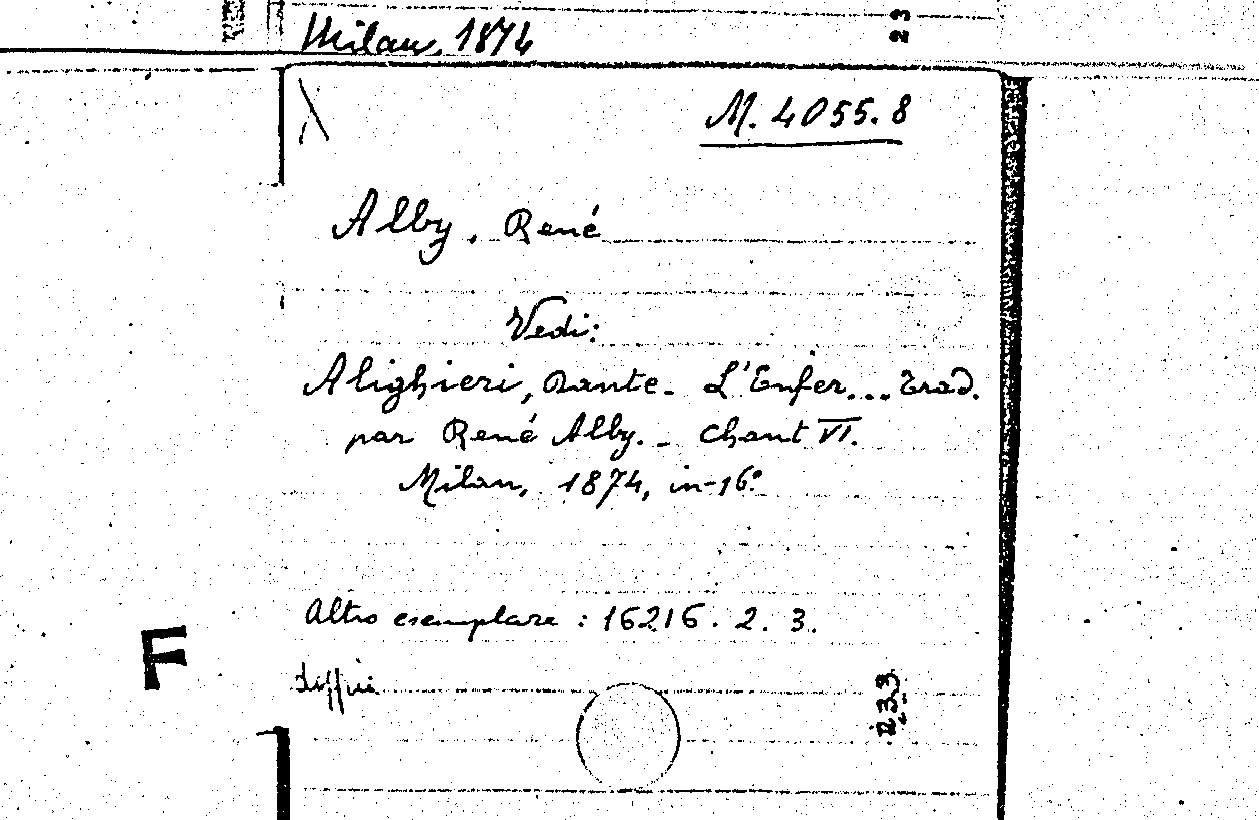 Milan, 1874
23
M. 4055. 8
Alby, René
Vedi:
Alighieri, Dante - L'Enfer... Trad.
par René Alby. - Chant VI.
Milan, 1874, in-16°
Altro esemplare : 16216. 2. 3.
F
233